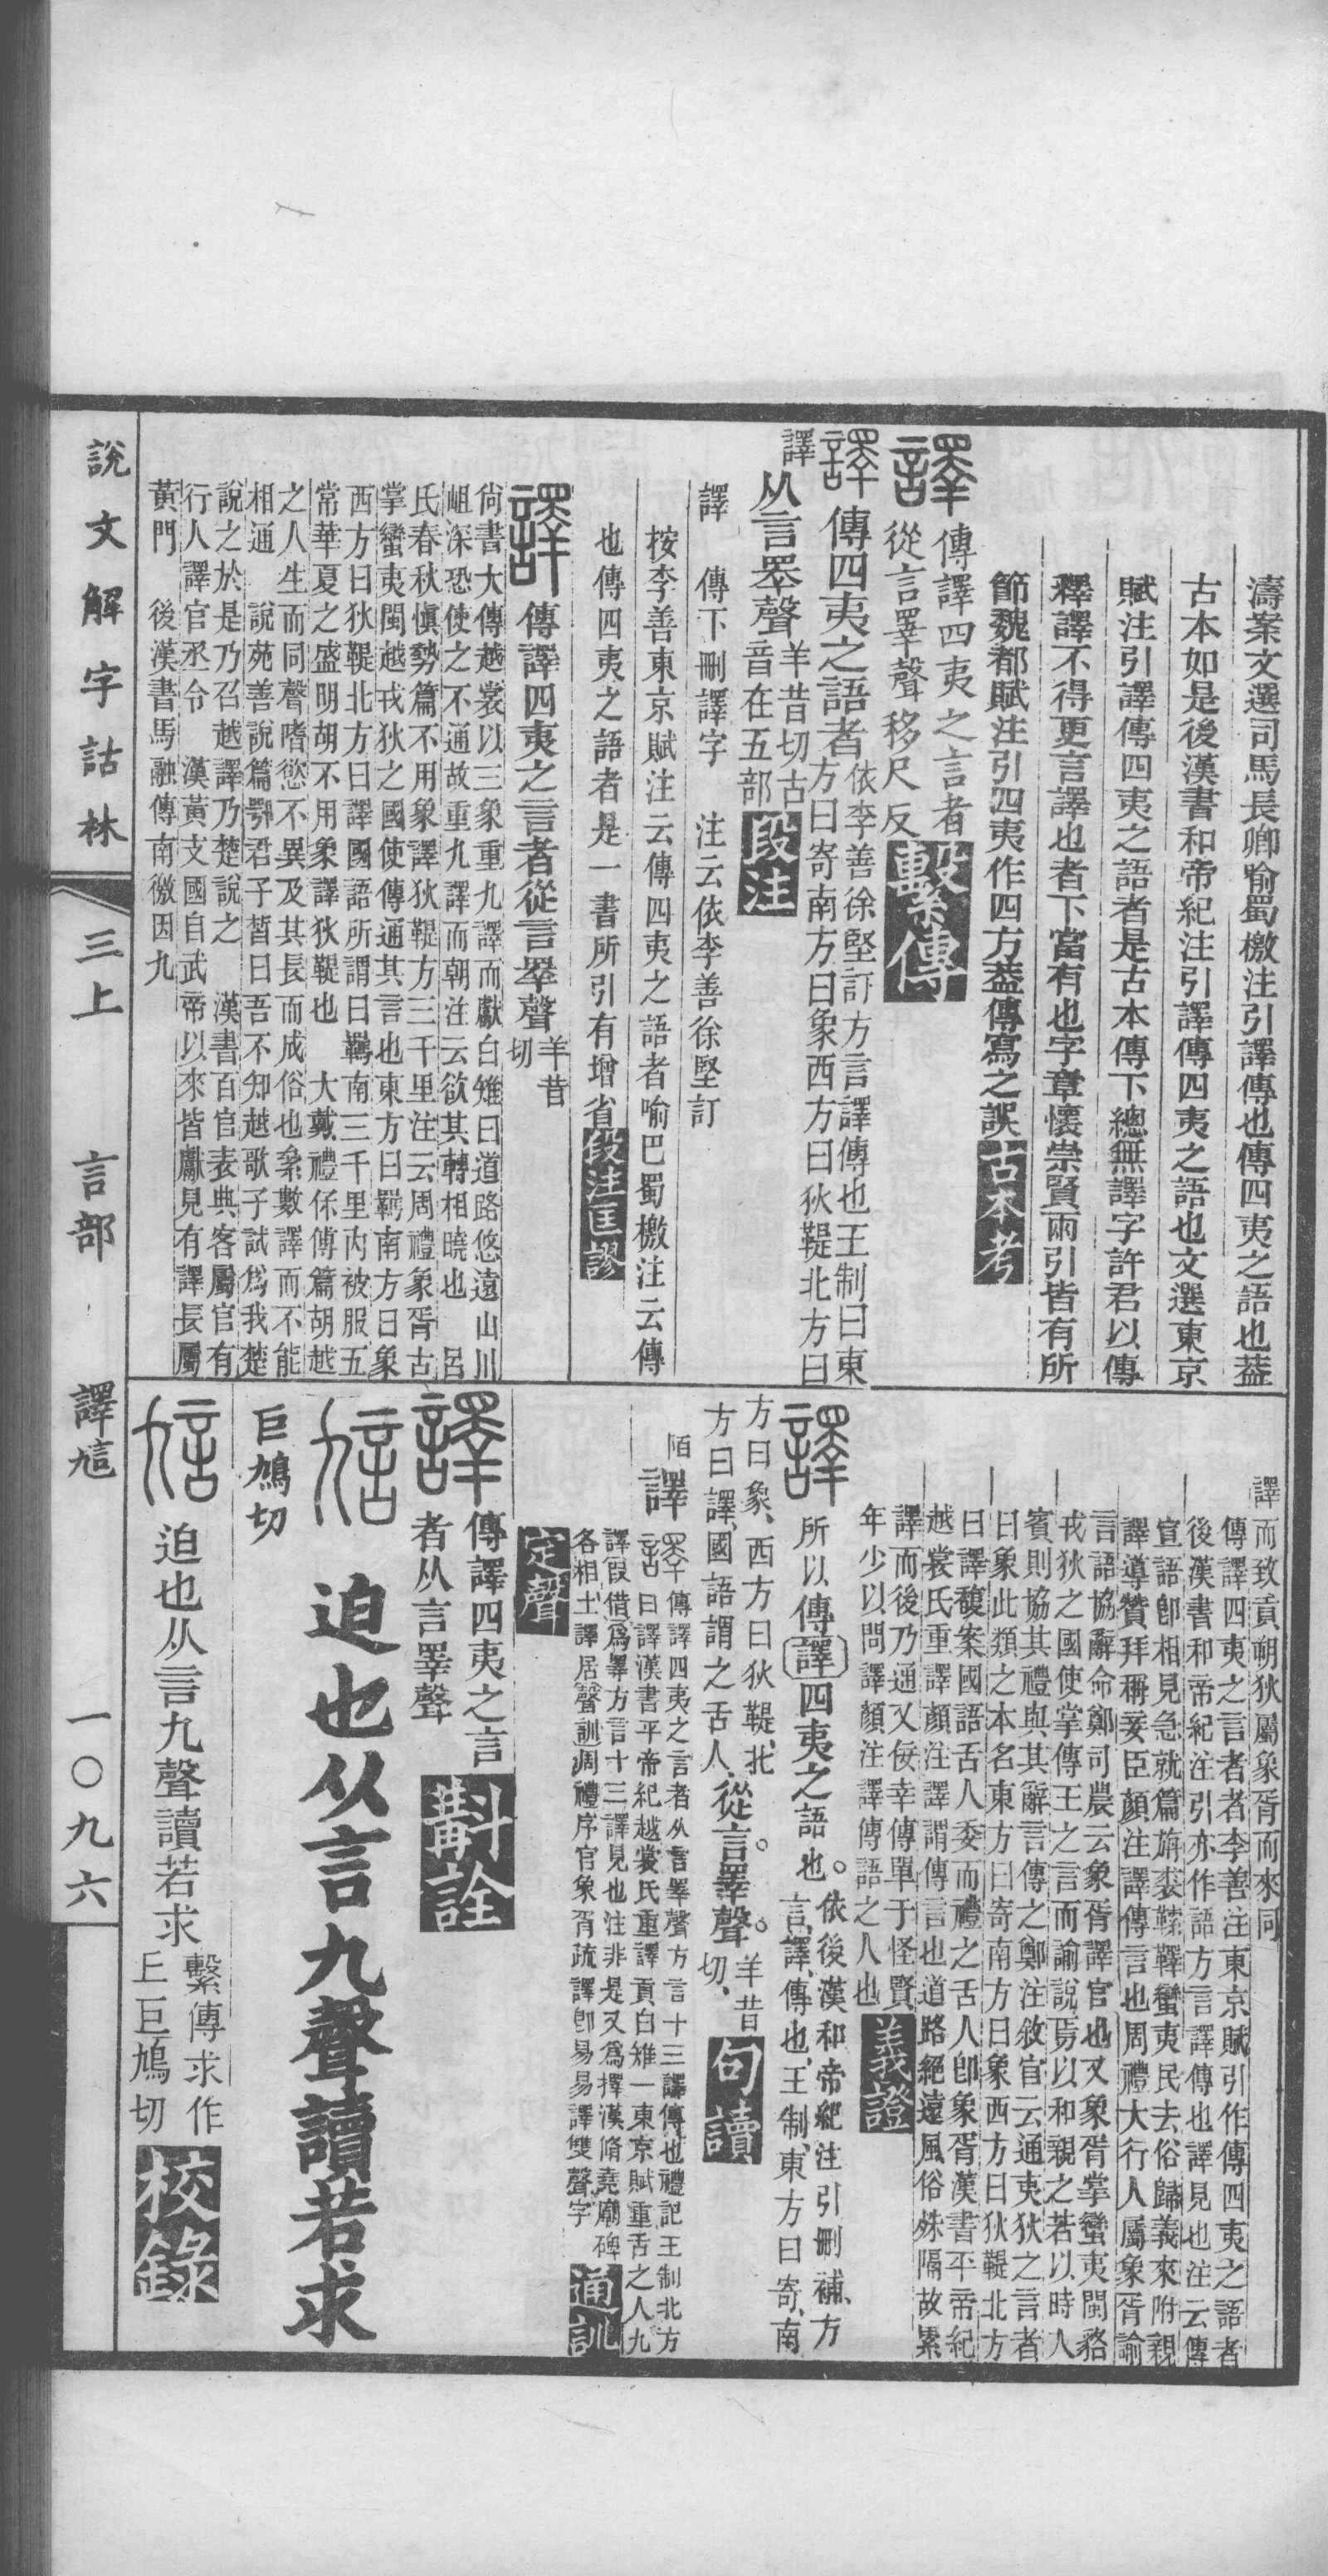 濤案文選司馬長卿喻蜀檄注引譯傳也傳四夷之語也葢
古本如是後漢書和帝紀注引譯傳四夷之語也文選東京
賦注引譯傳四夷之語者是古本傳下總無譯字許君以傳
釋譯不得更言譯也者下當有也字章懷崇賢兩引皆有所
節魏都賦注引四夷作四方葢傳寫之誤古本考
譯傳譯四夷之言者
從言睪聲移尺反繫傳
譯傳四夷之語者依李善徐堅訂方言譯傳也王制曰東
方曰寄南方曰象西方曰狄鞮北方曰
譯从言睪聲羊昔切古
音在五部段注
譯 傳下刪譯字 注云依李善徐堅訂
按李善東京賦注云傳四夷之語者喻巴蜀檄注云傳
也傳四夷之語者是一書所引有增省段注匡謬
譯傳譯四夷之言者從言睪聲羊昔
切
尙書大傳越裳以三象重九譯而獻白雉曰道路悠遠山川
岨深恐使之不通故重九譯而朝注云欲其轉相曉也 呂
氏春秋愼勢篇不用象譯狄鞮方三千里注云周禮象胥古
掌蠻夷閩越戎狄之國使傳通其言也東方曰羈南方曰象
西方曰狄鞮北方曰譯國語所謂曰羈南三千里內被服五
常華夏之盛明胡不用象譯狄鞮也 大戴禮保傅篇胡越
之人生而同聲嗜慾不異及其長而成俗也絫數譯而不能
相通 說苑善說篇鄂君子晳曰吾不知越歌子試爲我楚
說之於是乃召越譯乃楚說之 漢書百官表典客屬官有
行人譯官丞令 漢黃支國自武帝以來皆獻見有譯長屬
黃門 後漢書馬融傳南徼因九
譯而致貢朔狄屬象胥而來同
傳譯四夷之言者者李善注東京賦引作傳四夷之語者
後漢書和帝紀注引亦作語方言譯傳也譯見也注云傳
宣語卽相見急就篇旃裘鞣鞸蠻夷民去俗歸義來附親
譯導贊拜稱妾臣顏注譯傳言也周禮大行人屬象胥諭
言語協辭命鄭司農云象胥譯官也又象胥掌蠻夷閩貉
戎狄之國使掌傳王之言而諭說焉以和親之若以時入
賓則協其禮與其辭言傳之鄭注敘官云通夷狄之言者
曰象此類之本名東方曰寄南方曰象西方曰狄鞮北方
曰譯馥案國語舌人委而禮之舌人卽象胥漢書平帝紀
越裳氏重譯顏注譯謂傳言也道路絕遠風俗殊隔故累
譯而後乃通又佞幸傳單于怪賢
年少以問譯顏注譯傳語之人也義證
譯所以傳譯四夷之語也。依後漢和帝紀注引刪補、方
言、譯、傳也、王制、東方曰寄、南
方曰象、西方曰狄鞮、北
方曰譯、國語謂之舌人、從言。睪聲。羊昔
切、句讀
陌
譯傳譯四夷之言者从言睪聲方言十三譯傳也禮記王制北方
曰譯漢書平帝紀越裳氏重譯貢白雉一東京賦重舌之人九
譯叚借爲睪方言十三譯見也注非是又爲擇漢脩堯廟碑
各相土譯居聲訓周禮序官象胥疏譯卽易易譯雙聲字通訓
定聲
譯傳譯四夷之言
者从言睪聲斠詮
訄 迫也从言九聲讀若求
巨鳩切
訄迫也从言九聲讀若求繫傳求作
上巨鳩切校錄
說文解字詁林 三上 言部 譯訄 一〇九六